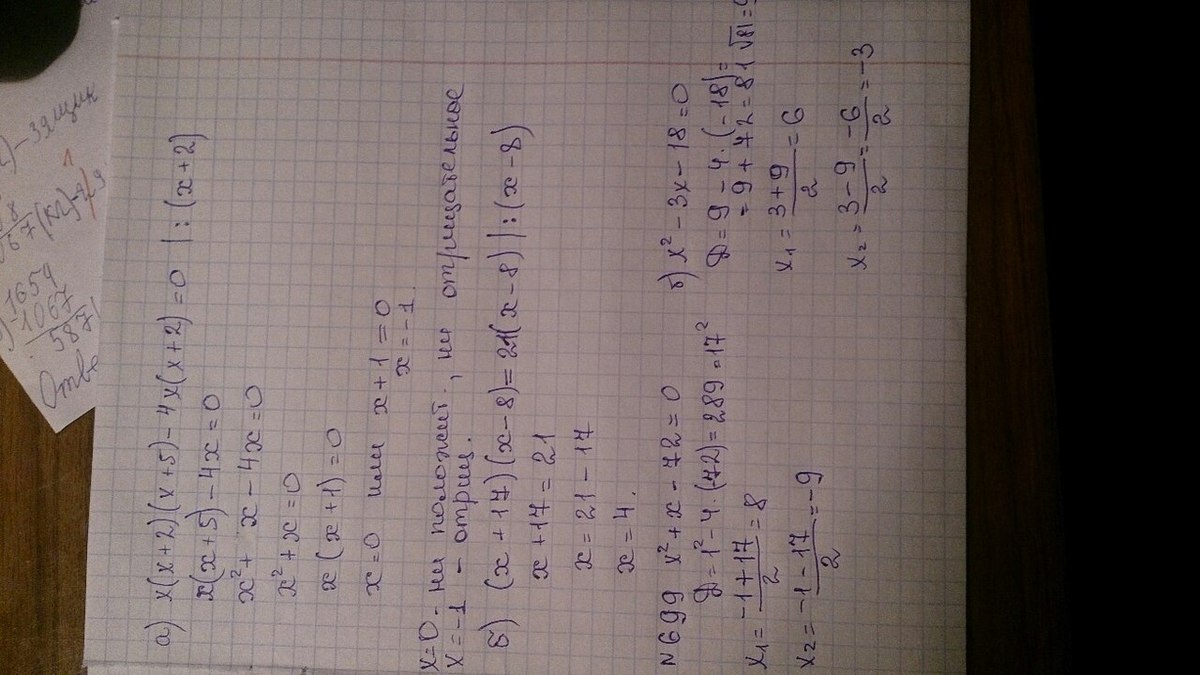 а) x(x+2)(x+5)-4x(x+2)=0 |:(x+2)
x(x+5)-4x=0
x²+ x-4x=0
x²+x=0
x(x+1)=0
x=0 или x+1=0
x=-1.
x=0 - ни полож., ни отрицательное
x=-1 - отриц.
б) (x+17)(x-8)=21(x-8) |:(x-8)
x+17=21
x=21-17
x=4.
№699 x²+x-72=0
D=1²-4·(-72)=289=17²
x₁=\frac{-1+17}{2}=8
x₂=\frac{-1-17}{2}=-9
б) x²-3x-18=0
D=9-4·(-18)=
=9+72=81 √81=9
x₁=\frac{3+9}{2}=6
x₂=\frac{3-9}{2}=\frac{-6}{2}=-3
1654
1067
587